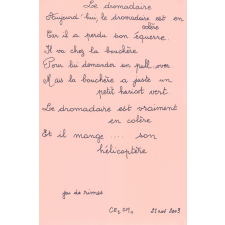 Le dromadaire
Aujourd'hui, le dromadaire est en
colère
Car il a perdu son équerre.
Il va chez la bouchère
Pour lui demander un pull over
Mais la bouchère a juste un
petit haricot vert.
Le dromadaire est vraiment
en colère
Et il mange .... son
hélicoptère
jeu de rimes
21 nov 2003